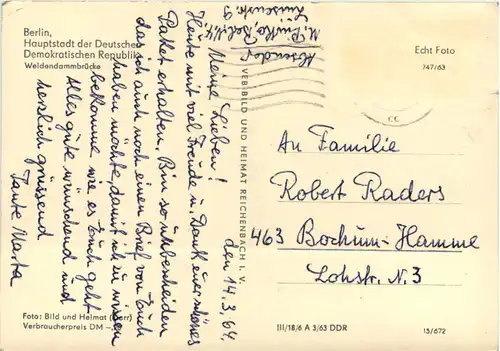 Berlin,
Hauptstadt der Deutschen
Demokratischen Republik
Weidendammbrücke
Echt Foto
747/63
Absender
Luisenstr. 9
den 14.3.64
Meine Lieben!
Heute mit viel Freude u. Dank euer schönes
Paket erhalten. Bin so unbescheiden
das ich auch noch einen Brief von Euch
haben möchte, damit ich zu wissen
bekomme wie es Euch geht
Alles gute wünschend und
herzlich grüssend
Tante Marta
VEB BILD UND HEIMAT REICHENBACH I. V.
An Familie
Robert Raders
463 Bochum-Hamme
Lohstr. N. 3
Foto: Bild und Heimat
Verbraucherpreis DM
III/18/6 A 3/63 DDR
15/672